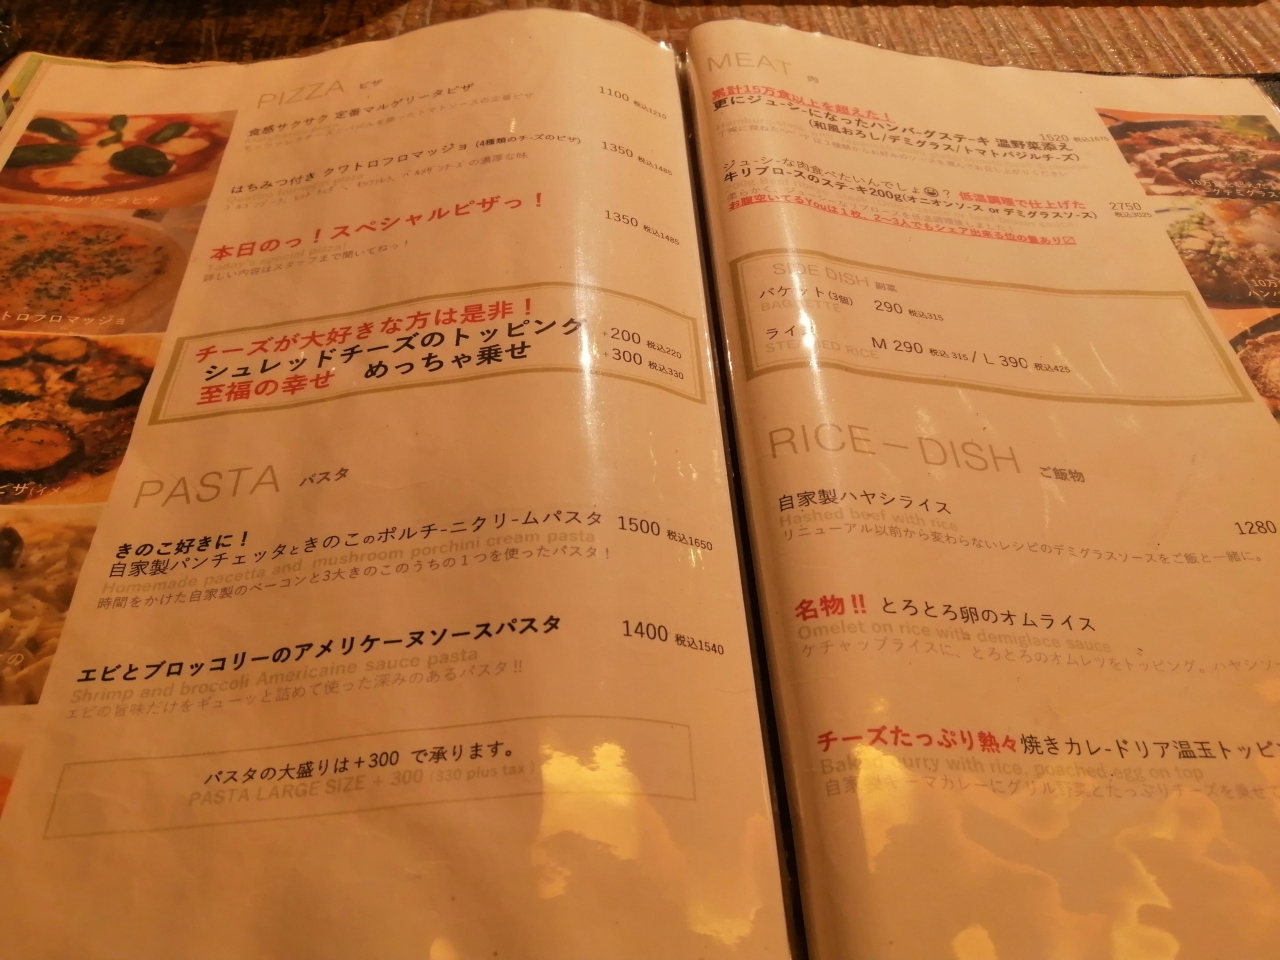 PIZZA ピザ
食感サクサク 定番マルゲリータピザ 1100 税込1210
はちみつ付き クワトロフロマッジョ (4種類のチーズのピザ) 1350 税込1485
の濃厚な味
本日のっ！スペシャルピザっ！ 1350 税込1485
Today's special pizza!
詳しい内容はスタッフまで聞いてねっ！
チーズが大好きな方は是非！
シュレッドチーズのトッピング +200 税込220
至福の幸せ めっちゃ乗せ +300 税込330
PASTA パスタ
きのこ好きに！
自家製パンチェッタときのこのポルチ-ニクリ-ムパスタ 1500 税込1650
Homemade pacetta and mushroom porchini cream pasta
時間をかけた自家製のベーコンと3大きのこのうちの１つを使ったパスタ！
エビとブロッコリーのアメリケーヌソースパスタ 1400 税込1540
Shrimp and broccoli Americaine sauce pasta
エビの旨味だけをギューッと詰めて使った深みのあるパスタ!!
パスタの大盛りは＋300 で承ります。
PASTA LARGE SIZE + 300 (330 plus tax)
マルゲリータピザ
トロフロマッジョ
MEAT 肉
累計15万食以上を超えた！
更にジュ-シ-になったハンバ-グステーキ 温野菜添え 1520 税込1675
(和風おろし/デミグラス/トマトバジルチ-ズ)
ジュ-シ-な肉食べたいんでしょ😀？ 低温調理で仕上げた
牛リブロースのステーキ200g(オニオンソース or デミグラスソ-ス) 2750 税込3025
お腹空いてるYouは１枚、2〜3人でもシェア出来る位の量あり☑
SIDE DISH 副菜
バケット(3個) 290 税込315
BAGUETTE
ライス M 290 税込 315 / L 390 税込425
STEAMED RICE
RICE－DISH ご飯物
自家製ハヤシライス 1280
Hashed beef with rice
リニューアル以前から変わらないレシピのデミグラスソースをご飯と一緒に。
名物!! とろとろ卵のオムライス
Omelet on rice with demiglace sauce
ケチャップライスに、とろとろのオムレツをトッピング。ハヤシソ
チーズたっぷり熱々焼きカレ-ドリア温玉トッピ
Baked curry with rice, poached egg on top
自家製キーマカレーにグリル野菜とたっぷりチーズを乗せて